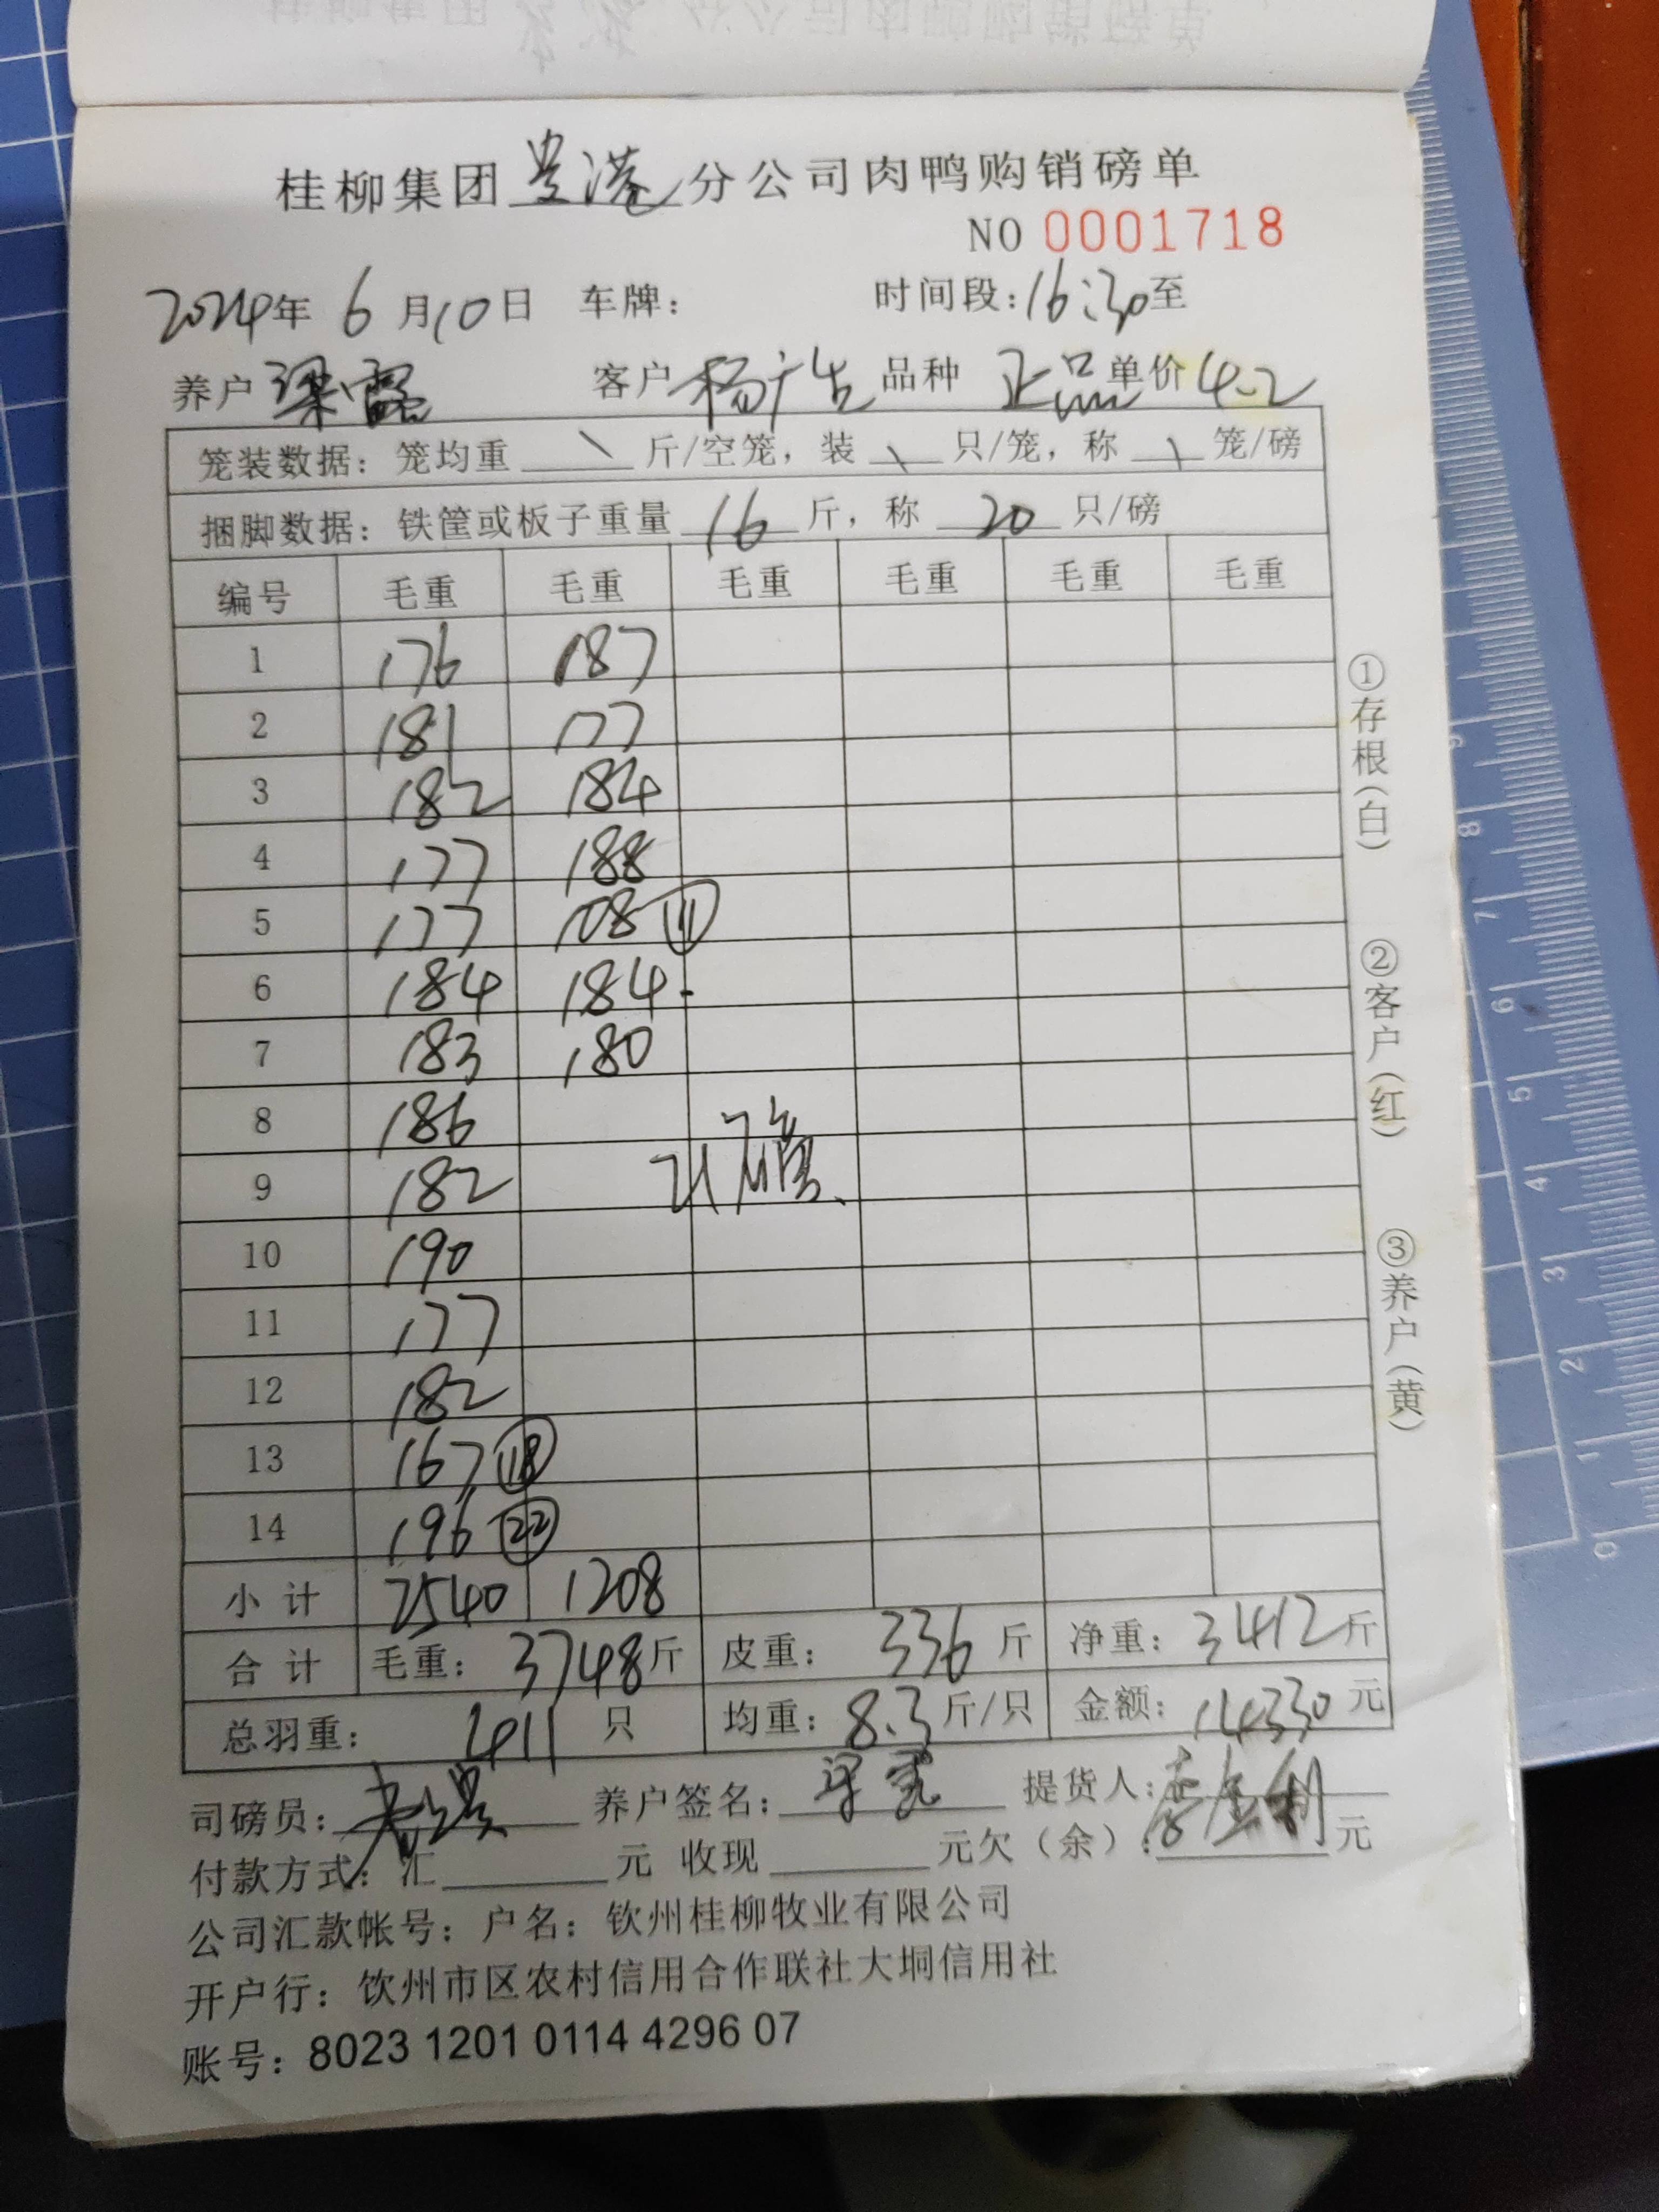 桂柳集团贵港分公司肉鸭购销磅单
NO 0001718
2024年 6月10日 车牌: 时间段:16:30至
养户 梁露 客户 杨广生 品种 正品 单价 4.2
笼装数据: 笼均重 \ 斤/空笼, 装 \ 只/笼, 称 \ 笼/磅
捆脚数据: 铁筐或板子重量 16 斤, 称 20 只/磅
编号 毛重 毛重 毛重 毛重 毛重 毛重
1 176 187
2 181 177
3 182 184
4 177 188
5 177 108 ⑪
6 184 184
7 183 180
8 186
9 182 21磅
10 190
11 177
12 182
13 167 ⑱
14 196 ㉒
小计 2540 1208
合计 毛重: 3748斤 皮重: 336斤 净重: 3412斤
总羽重: 411 只 均重: 8.3斤/只 金额: 14330元
司磅员: 养户签名: 提货人:
付款方式: 汇 元 收现 元欠(余): 元
公司汇款帐号: 户名: 钦州桂柳牧业有限公司
开户行: 饮州市区农村信用合作联社大垌信用社
账号: 8023 1201 0114 4296 07
①存根(白) ②客户(红) ③养户(黄)
9
8
7
6
5
4
3
2
1
0